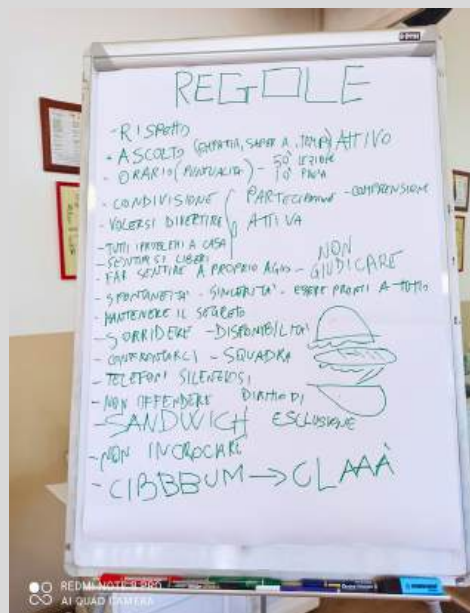 REGOLE
- RISPETTO
- ASCOLTO (EMPATIA, SAPER A., TEMPI) ATTIVO
- ORARIO (PUNTUALITÀ) - 50' LEZIONE
10' PAUSA
- CONDIVISIONE PARTECIPAZIONE - COMPRENSIONE
- VOLERSI DIVERTIRE ATTIVA
- TUTTI I PROBLEMI A CASA
- SENTIRSI LIBERI
- FAR SENTIRE A PROPRIO AGIO - NON GIUDICARE
- SPONTANEITÀ - SINCERITÀ - ESSERE PRONTI A TUTTO
- MANTENERE IL SEGRETO
- SORRIDERE - DISPONIBILITÀ
- CONFRONTARCI - SQUADRA
- TELEFONI SILENZIOSI
- NON OFFENDERE DIRITTO DI
- SANDWICH ESCLUSIONE
- NON INCROCIARE
- CIBBBUM → CLAAÀ
REDMI NOTE 9 PRO
AI QUAD CAMERA